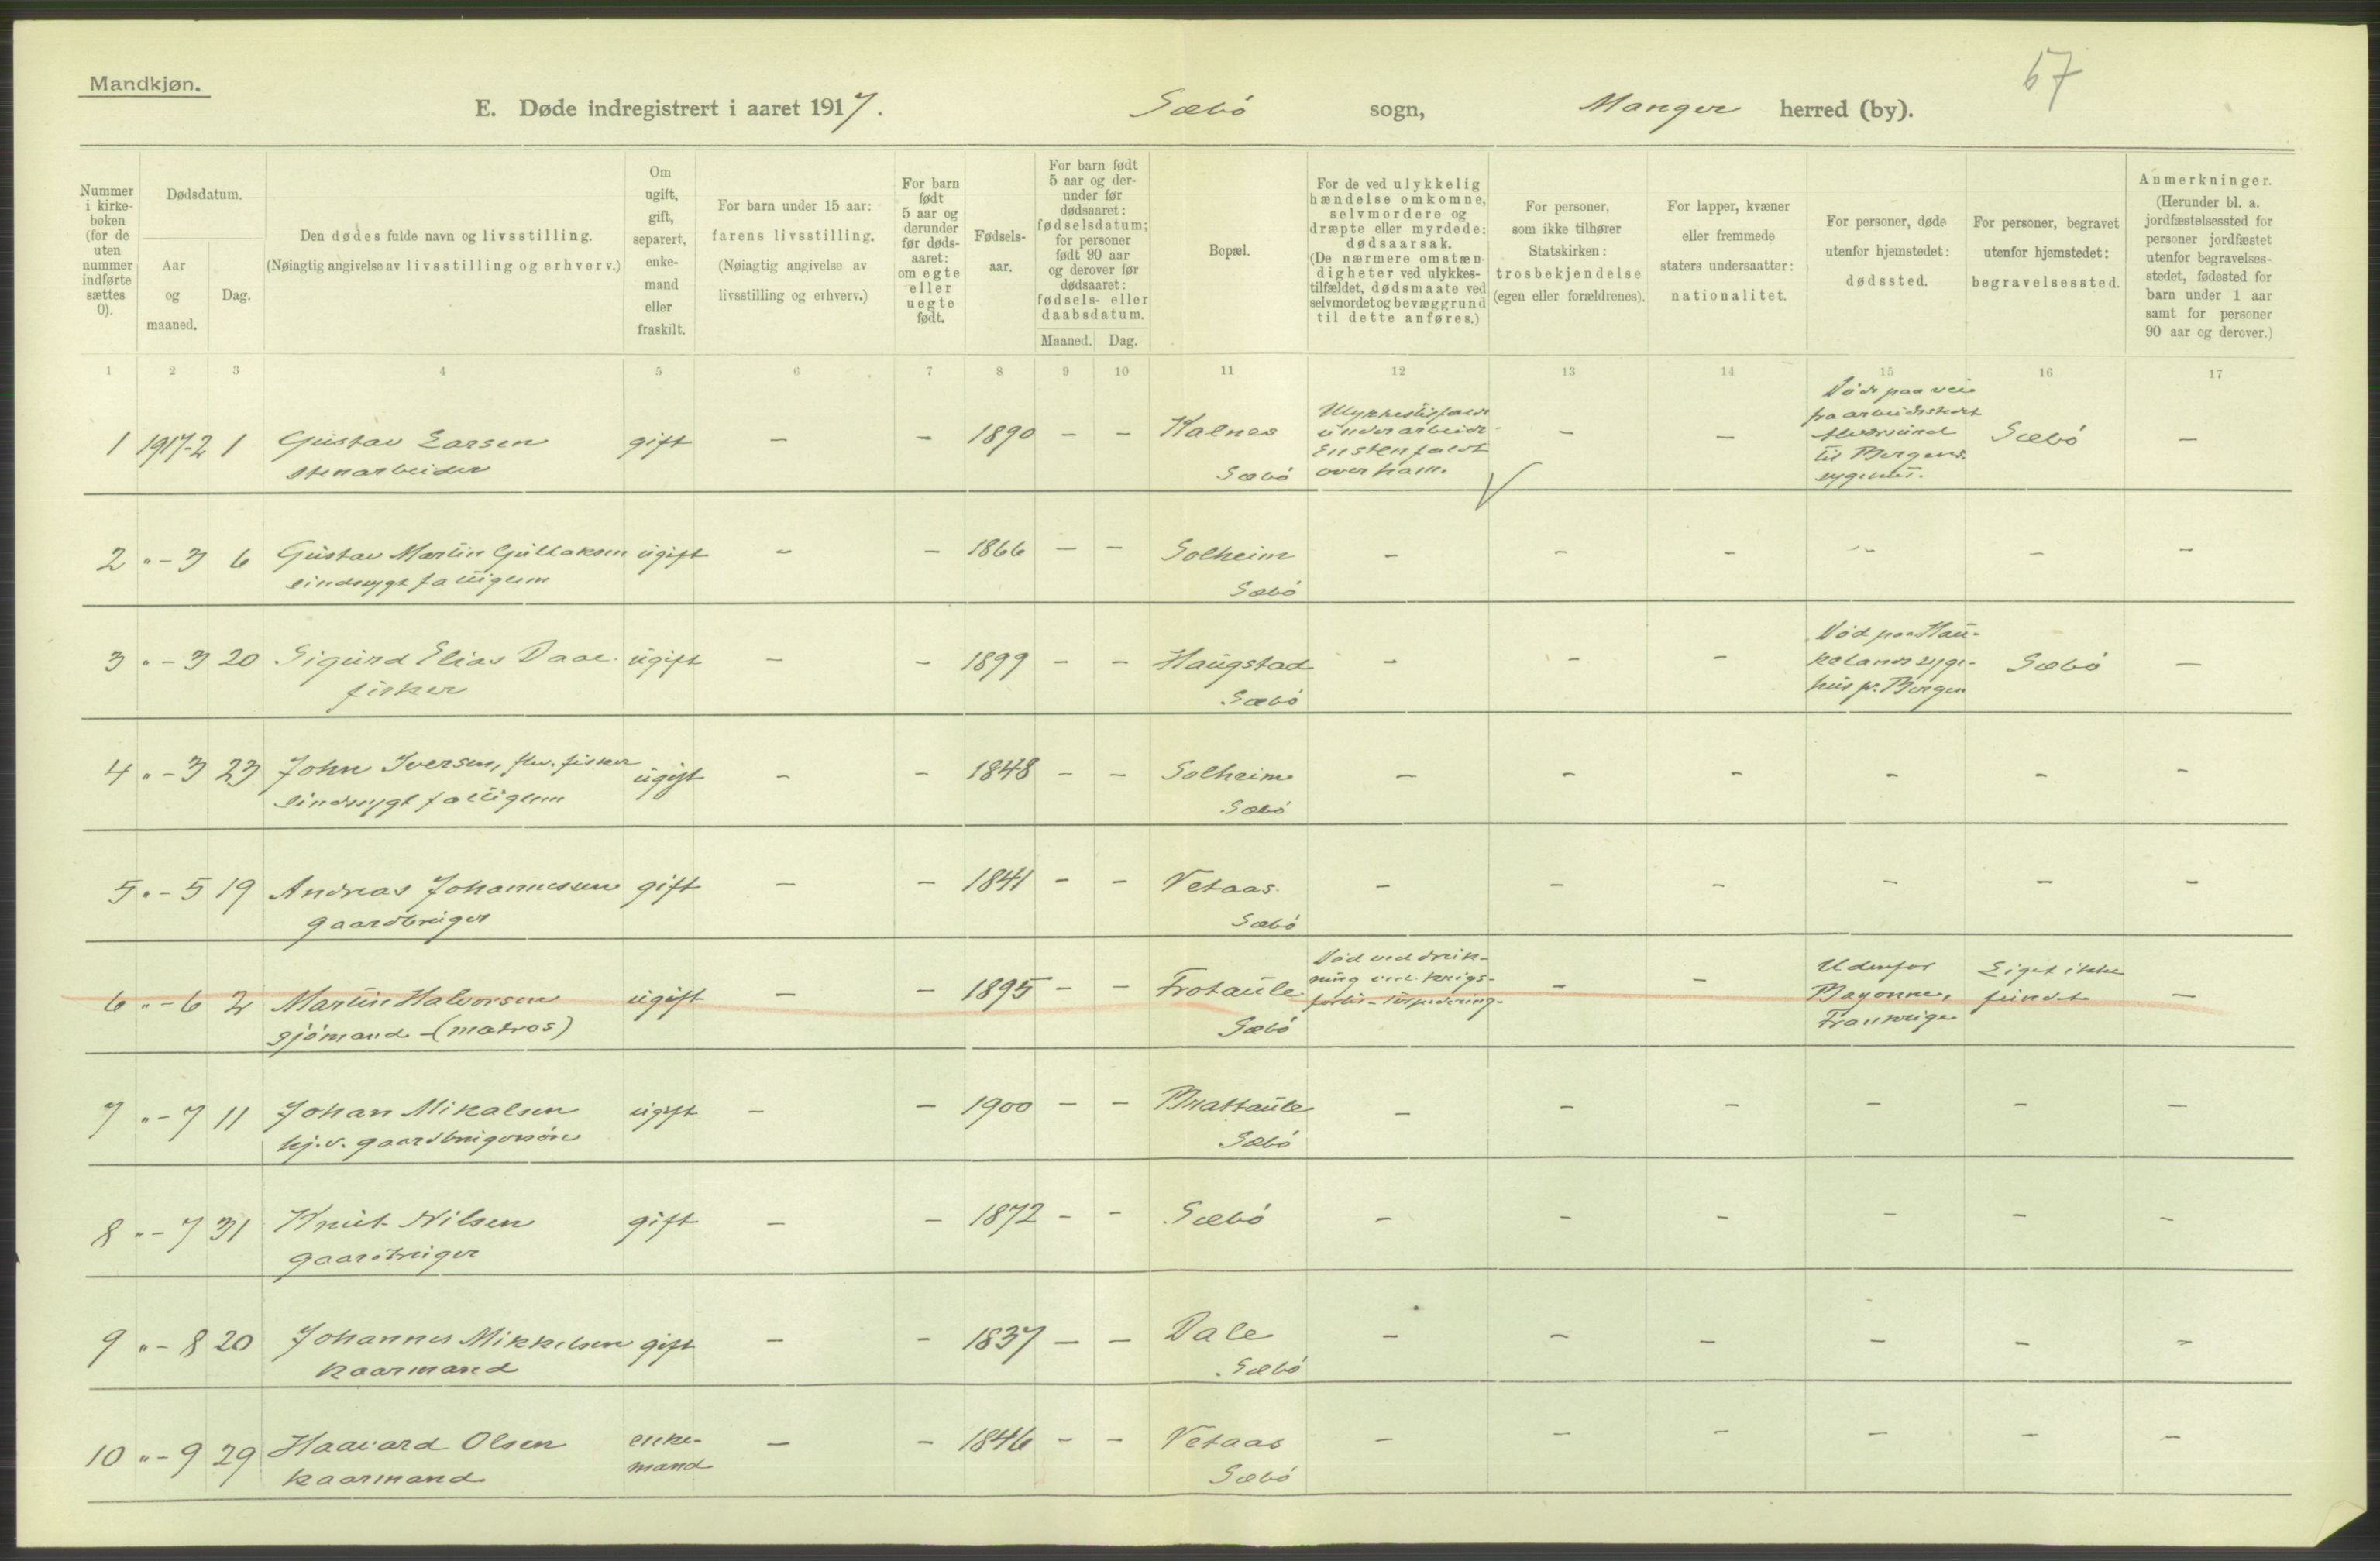 Mandkjøn.
67
E. Døde indregistrert i aaret 1917. Sæbö sogn, Manger herred (by).
Nummer i kirke-boken (for de uten nummer indførte sættes 0).
Dødsdatum.
Aar og maaned.
Dag.
Den dødes fulde navn og livsstilling.
(Nøiagtig angivelse av livsstilling og erhverv.)
Om ugift, gift, separert, enke-mand eller fraskilt.
For barn under 15 aar: farens livsstilling. (Nøiagtig angivelse av livsstilling og erhverv.)
For barn født 5 aar og derunder før døds-aaret: om egte eller uegte født.
Fødsels-aar.
For barn født 5 aar og der-under før dødsaaret: fødselsdatum; for personer født 90 aar og derover før dødsaaret: fødsels- eller daabsdatum.
Maaned. Dag.
Bopæl.
For de ved ulykkelig hændelse omkomne, selvmordere og dræpte eller myrdede: dødsaarsak. (De nærmere omstæn-digheter ved ulykkes-tilfældet, dødsmaate ved selvmordet og bevæggrund til dette anføres.)
For personer, som ikke tilhører Statskirken: trosbekjendelse (egen eller forældrenes).
For lapper, kvæner eller fremmede staters undersaatter: nationalitet.
For personer, døde utenfor hjemstedet: dødssted.
For personer, begravet utenfor hjemstedet: begravelsessted.
Anmerkninger. (Herunder bl. a. jordfæstelsessted for personer jordfæstet utenfor begravelses-stedet, fødested for barn under 1 aar samt for personer 90 aar og derover.)
1 2 3 4 5 6 7 8 9 10 11 12 13 14 15 16 17
1 1917-2 1 Gustav Larsen stenarbeider gift - - 1890 - - Kalnes Sæbö Ulykkestilfælde under arbeide En sten faldt over ham. - - Döde paa vei fra arbeidsstedet til Bergens sygehus. Sæbö -
2 " - 3 6 Gustav Martin Gullaksen sindssygt fattiglem ugift - - 1866 - - Solheim Sæbö - - - - - -
3 " - 3 20 Sigurd Elias Daae fisker ugift - - 1899 - - Haugstad Sæbö - - - Död paa Hau-kelands syge-hus pr. Bergen Sæbö -
4 " - 3 23 John Iversen, fhv. fisker sindssygt fattiglem ugift - - 1848 - - Solheim Sæbö - - - - - -
5 " - 5 19 Andreas Johannessen gaardbruger gift - - 1841 - - Vetaas Sæbö - - - - - -
6 " - 6 2 Martin Halvorsen sjömand - (matros) ugift - - 1895 - - Frotaule Sæbö Död ved druk-ning ved krigs-forlis - torpedering - - - Udenfor Bayonne, Frankrige Liget ikke fundet -
7 " - 7 11 Johan Mikalsen hj.v. gaardbrugersön ugift - - 1900 - - Brattaule Sæbö - - - - - -
8 " - 7 31 Knut Nilsen gaardbruger gift - - 1872 - - Sæbö - - - - - -
9 " - 8 20 Johannes Mikkelsen kaarmand gift - - 1837 - - Dale Sæbö - - - - - -
10 " - 9 29 Haavard Olsen kaarmand enke-mand - - 1846 - - Vetaas Sæbö - - - - - -